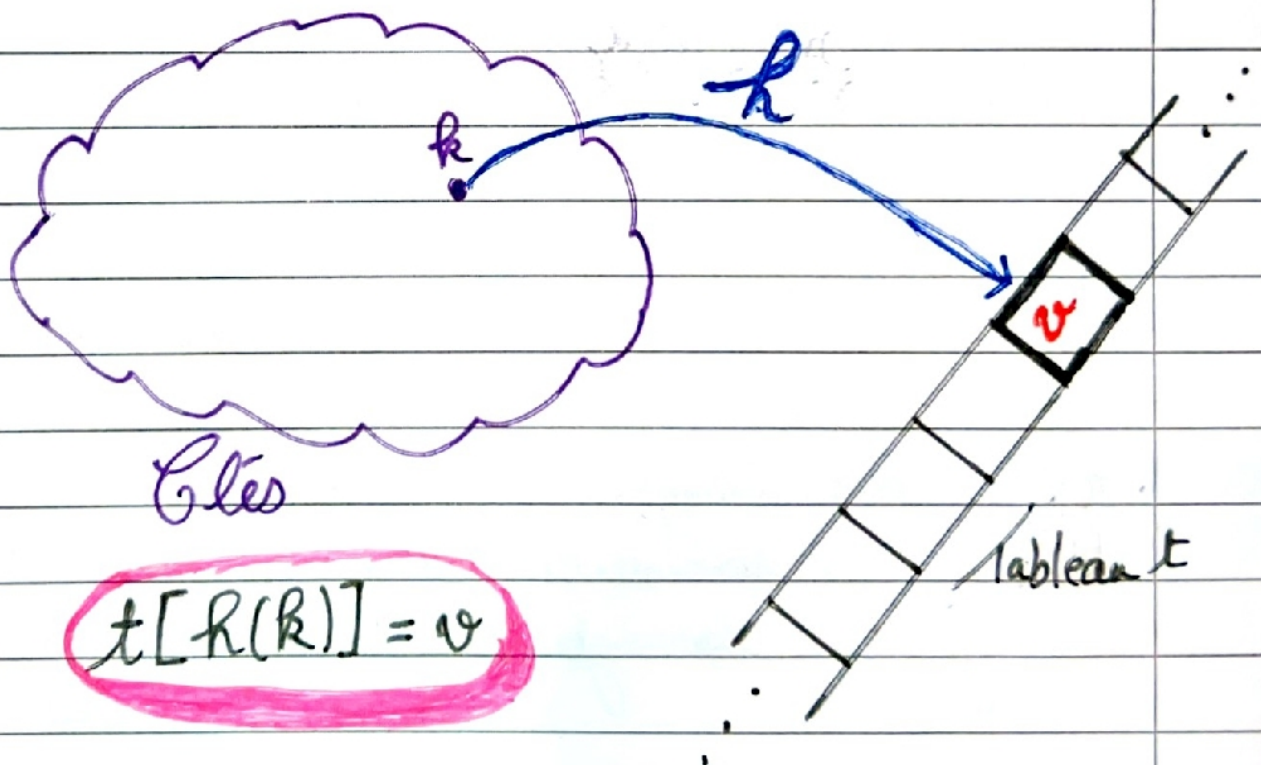 h
k
v
Clés
Tableau t
t[h(k)] = v